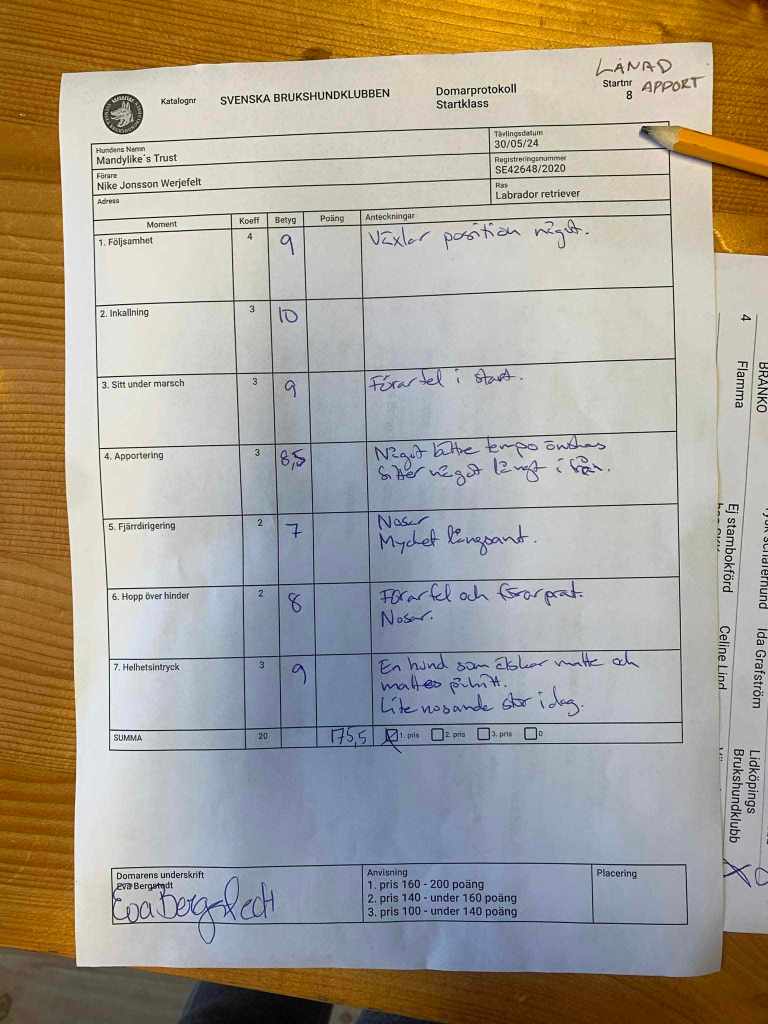 LÅNAD
APPORT
Katalognr SVENSKA BRUKSHUNDKLUBBEN Domarprotokoll Startklass Startnr 8
Hundens Namn
Mandylike´s Trust
Tävlingsdatum
30/05/24
Förare
Nike Jonsson Werjefelt
Registreringsnummer
SE42648/2020
Adress
Ras
Labrador retriever
Moment Koeff Betyg Poäng Anteckningar
1. Följsamhet 4 9 Växlar position något.
2. Inkallning 3 10
3. Sitt under marsch 3 9 Förarfel i start.
4. Apportering 3 8,5 Något bättre tempo önskas
Sitter något långt ifrån.
5. Fjärrdirigering 2 7 Nosar
Mycket långsamt.
6. Hopp över hinder 2 8 Förarfel och förarprat.
Nosar.
7. Helhetsintryck 3 9 En hund som älskar matte och
mattes påhitt.
Lite nosande stör idag.
SUMMA 20 175,5 1. pris 2. pris 3. pris 0
Domarens underskrift
Eva Bergstedt
Eva Bergstedt
Anvisning
1. pris 160 - 200 poäng
2. pris 140 - under 160 poäng
3. pris 100 - under 140 poäng
Placering
BRANKO
4 Flamma
Ej stambokförd
Celine Lind
Ida Grafström
Lidköpings
Brukshundklubb